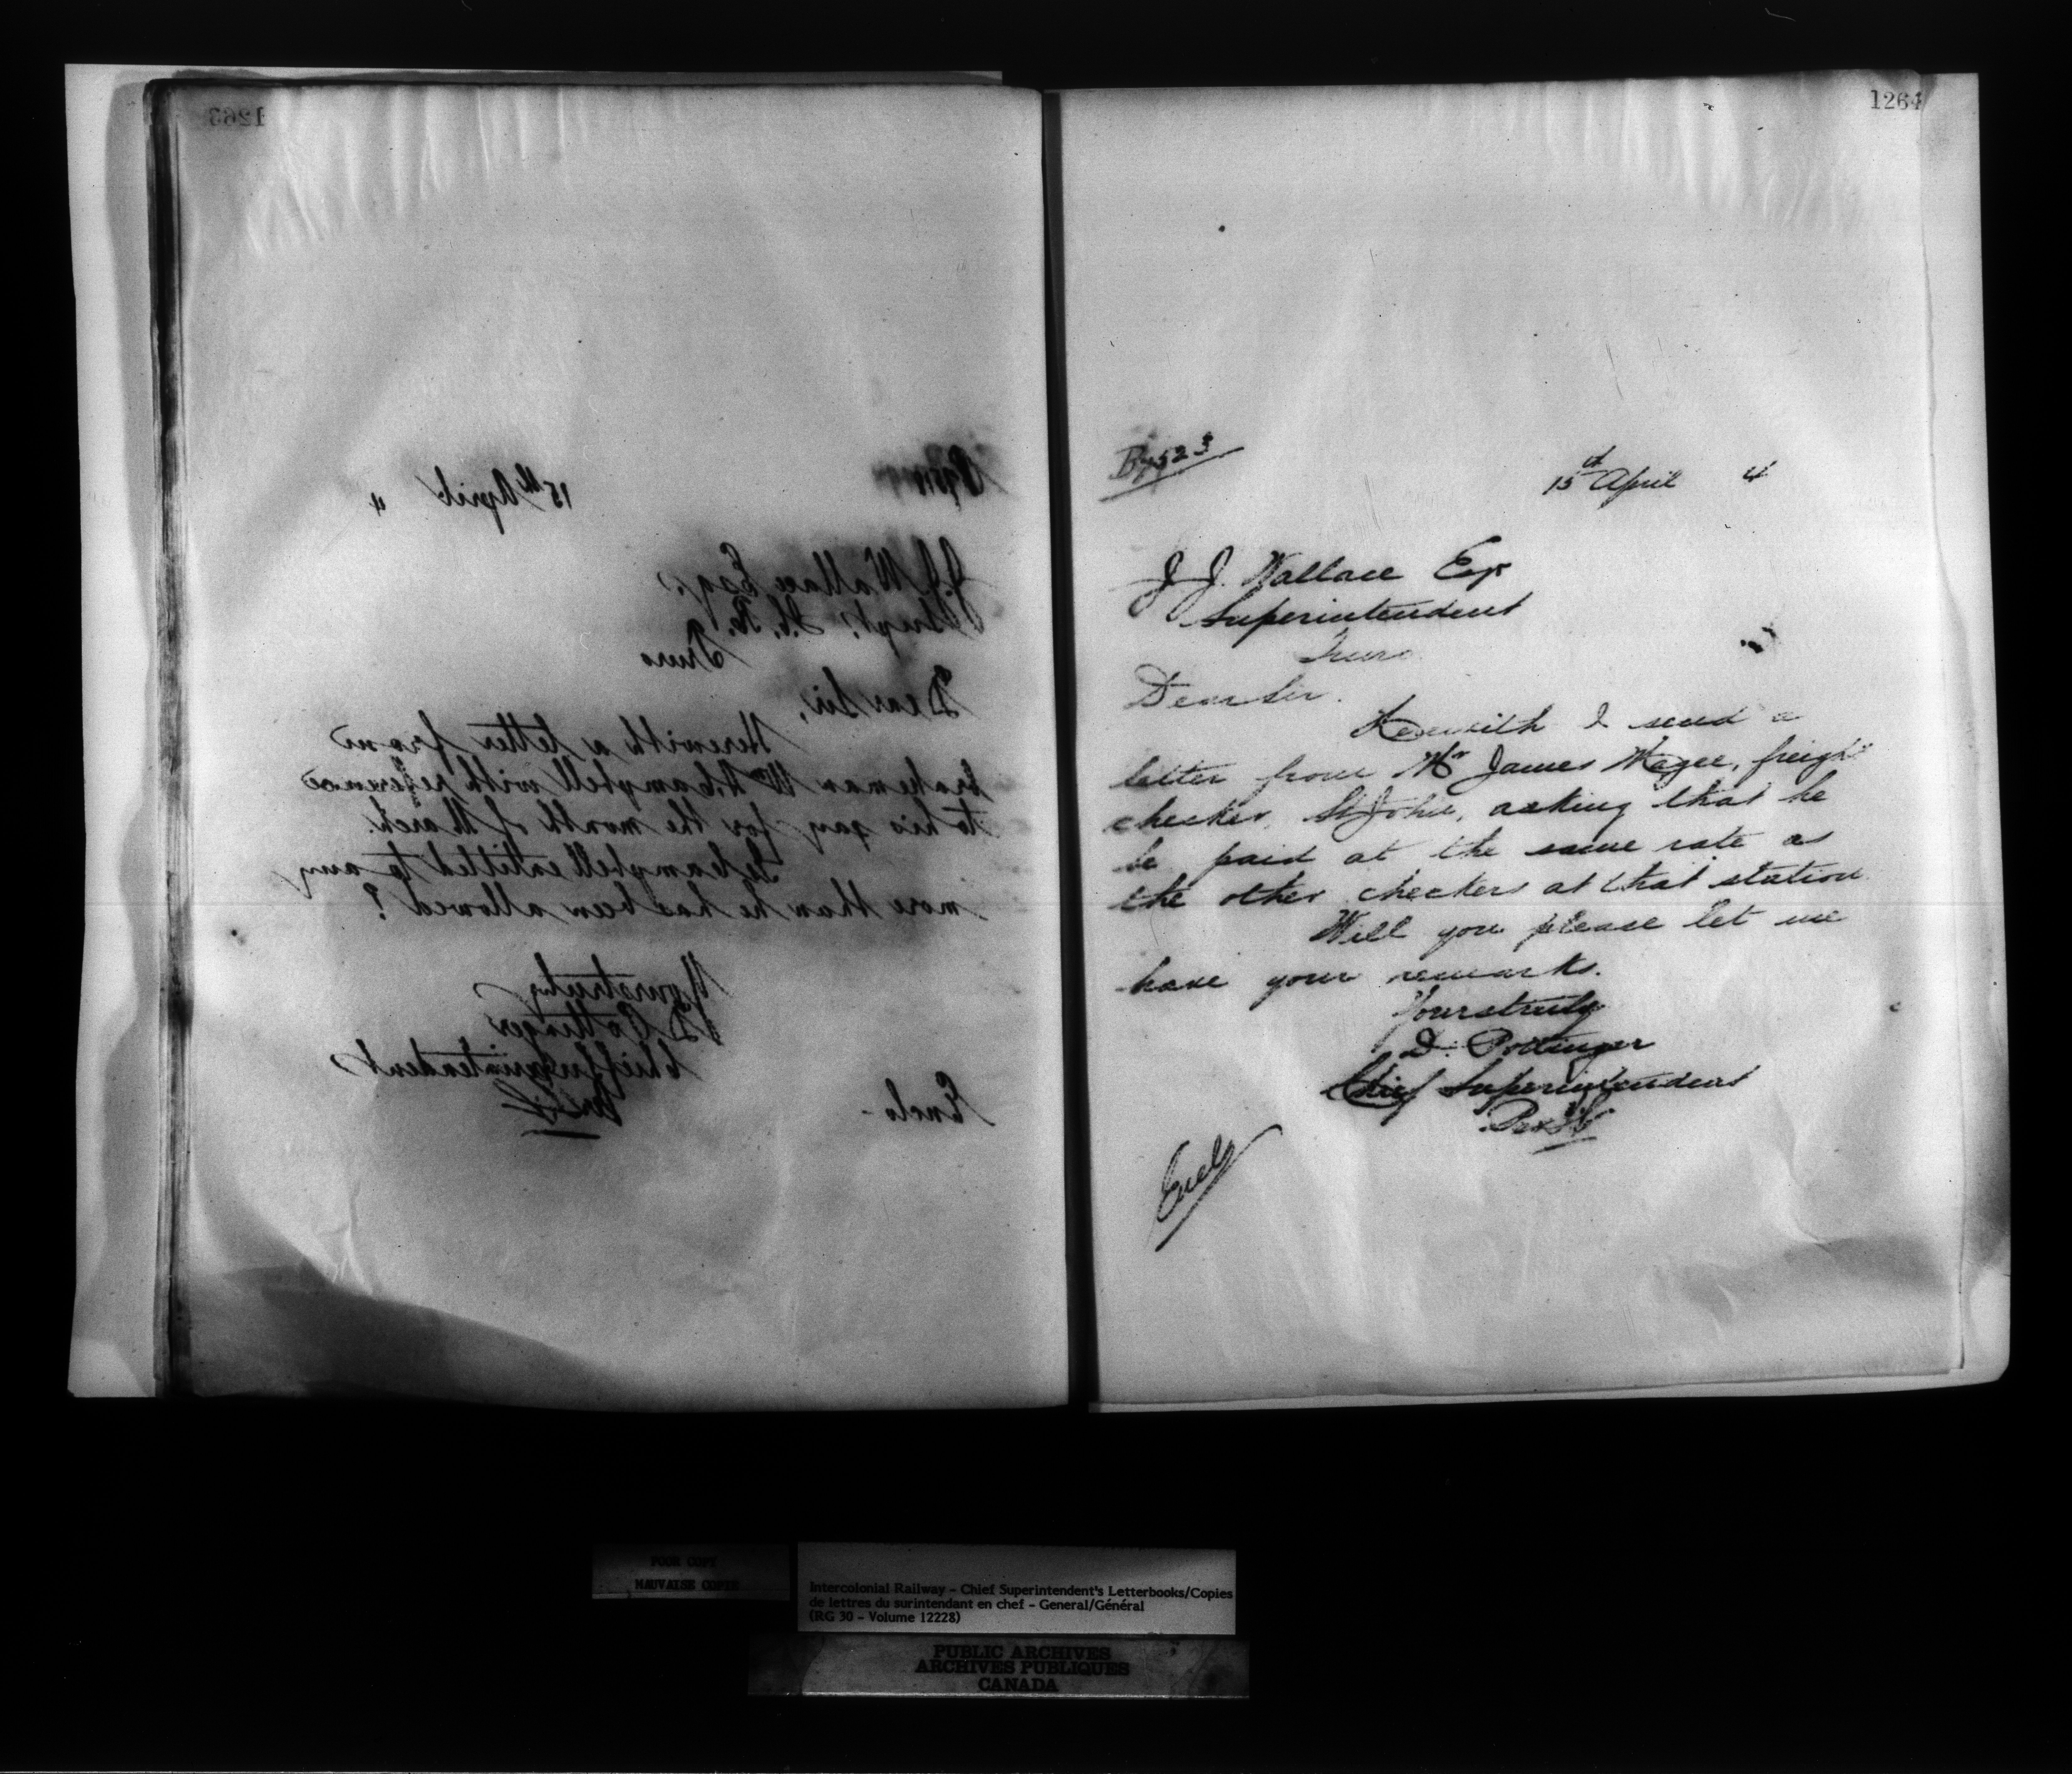 1263
15th April 4
J.J. Wallace Esq.
Supt. I.C.R.
Truro
Dear Sir,
Herewith a letter from
brakeman Wm H. Campbell with reference
to his pay for the month of March.
Is Campbell entitled to any
more than he has been allowed?
Yours truly
D Pottinger
Chief Superintendent
Enclo-
1264
B7523
15th April 4
J. J. Wallace Esqr
Superintendent
Truro
Dear Sir.
Herewith I send a
letter from Mr James Magee, freight
checker, St John, asking that he
be paid at the same rate as
the other checkers at that station
Will you please let me
have your remarks.
Yours truly
D. Pottinger
Chief Superintendent
Encls
POOR COPY
MAUVAISE COPIE
Intercolonial Railway - Chief Superintendent's Letterbooks/Copies
de lettres du surintendant en chef - General/Général
(RG 30 - Volume 12228)
PUBLIC ARCHIVES
ARCHIVES PUBLIQUES
CANADA